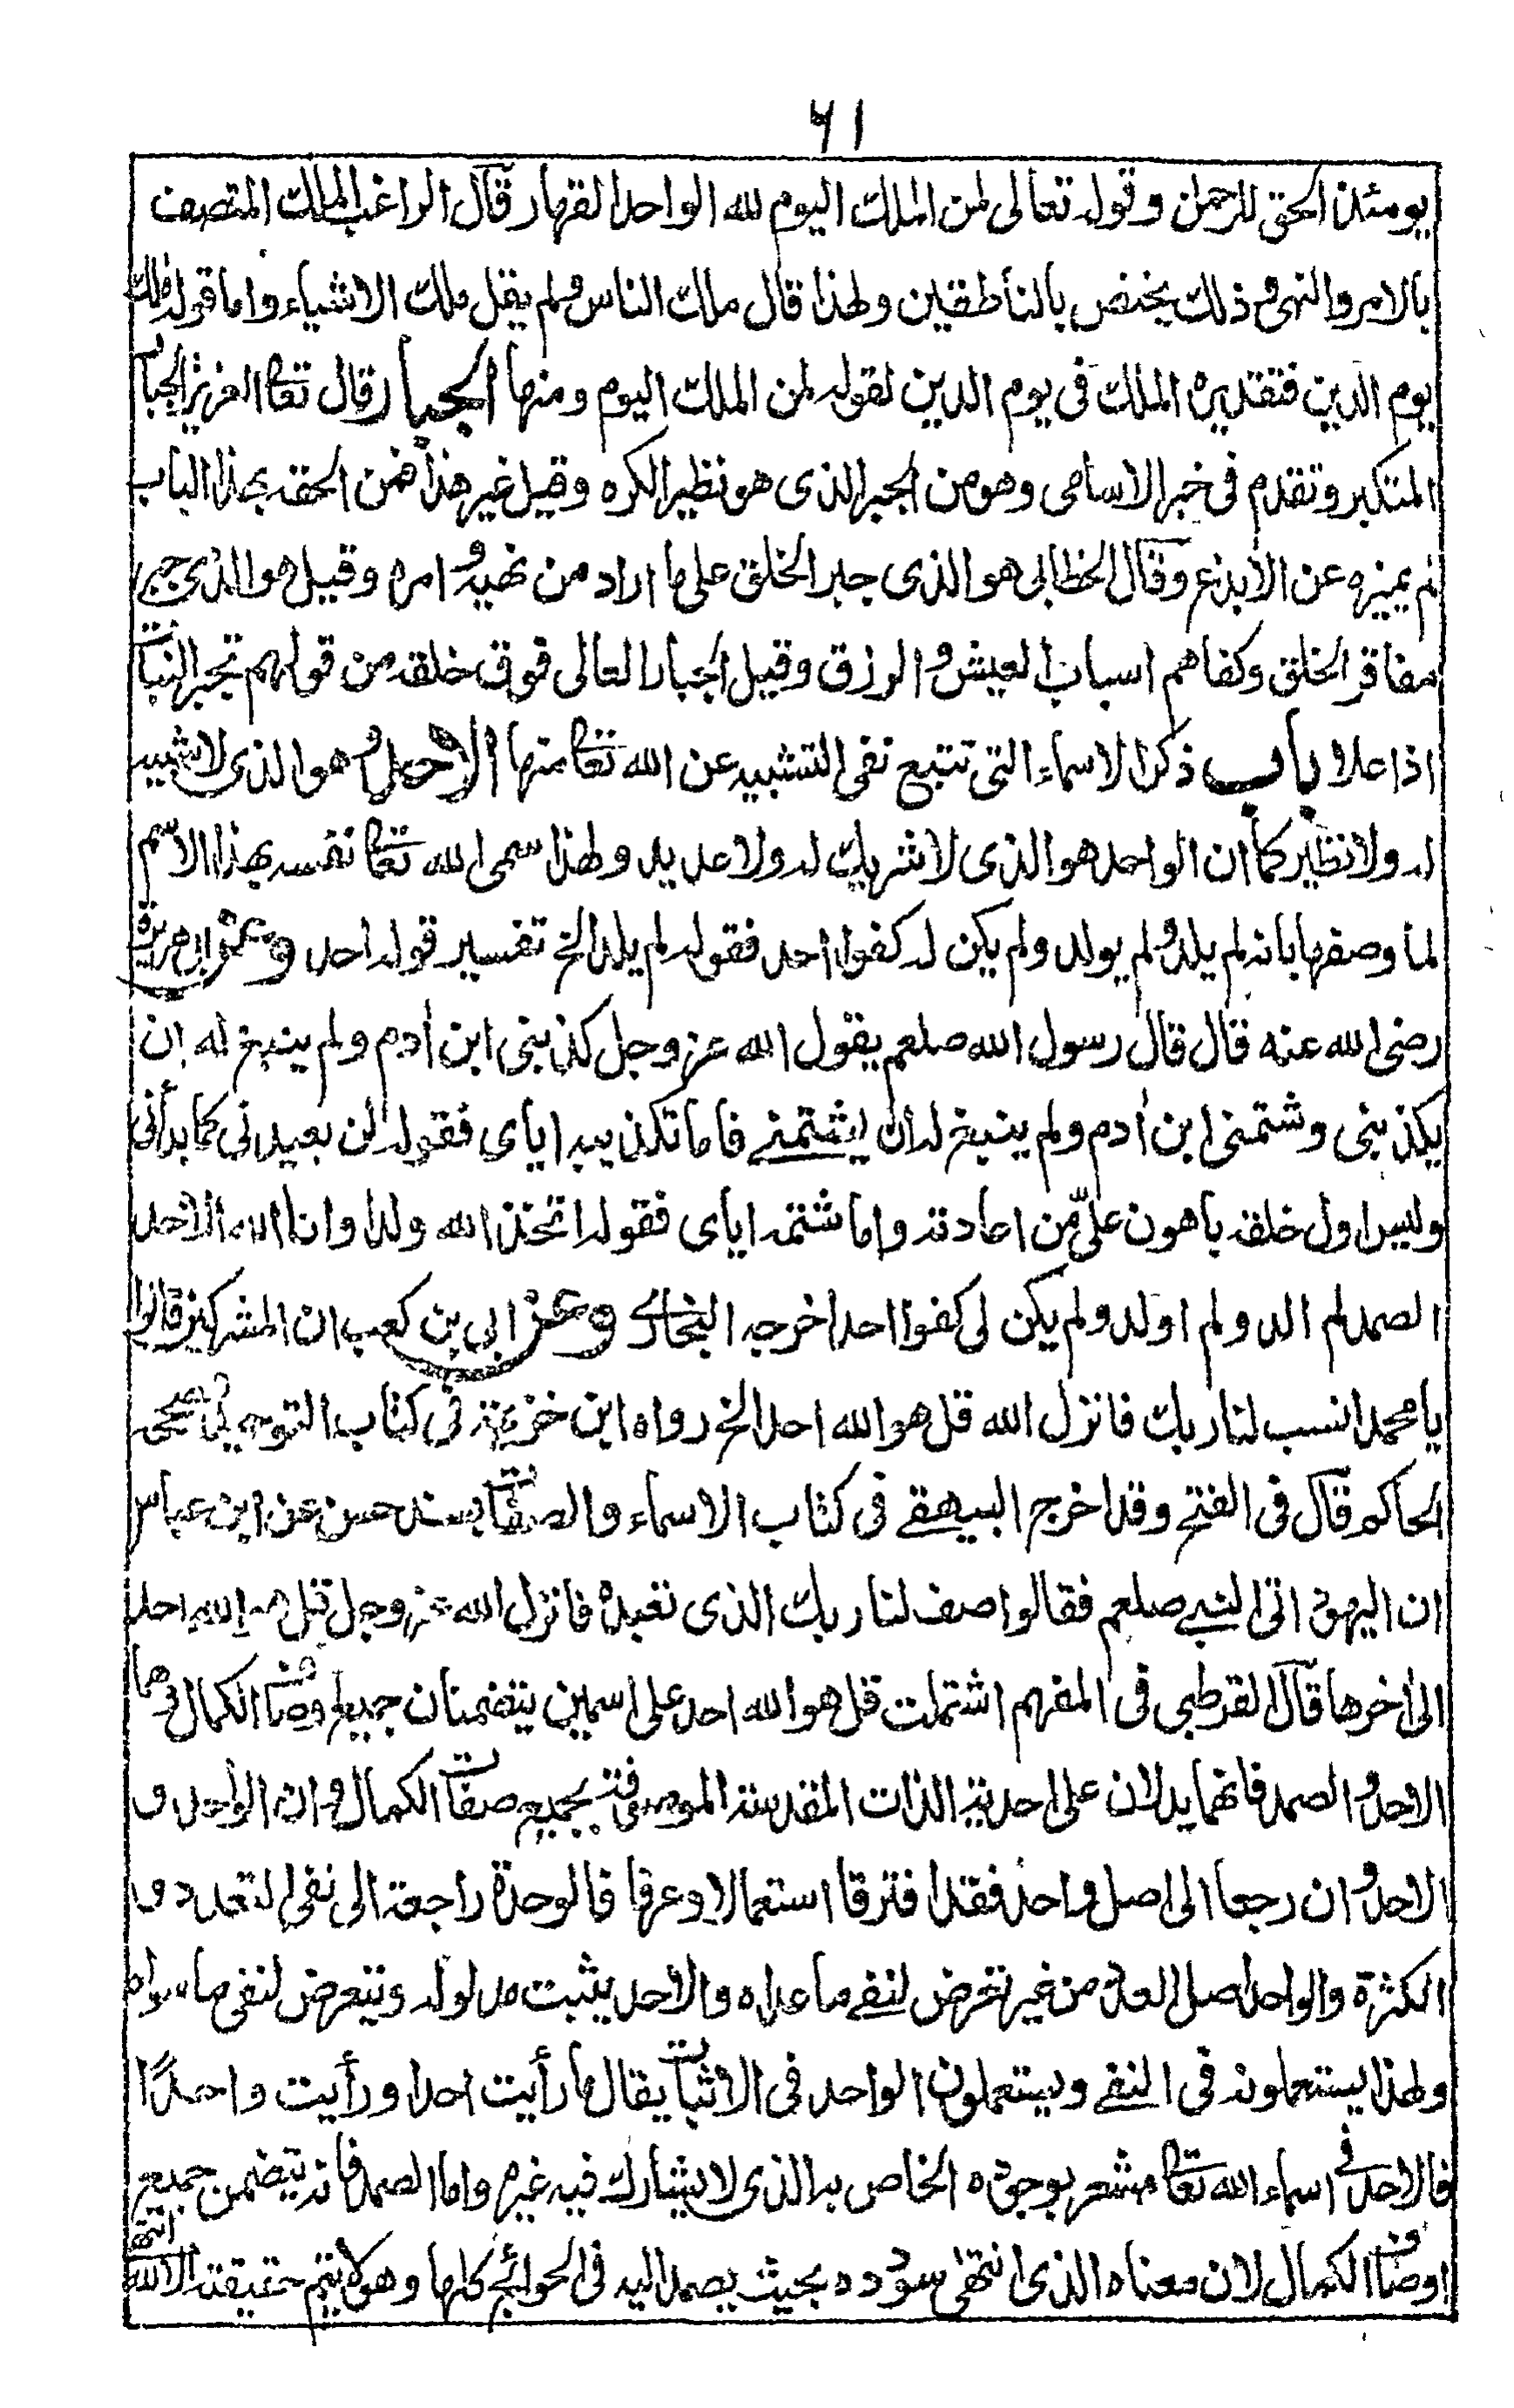 ٦١
يومئذ الحق للرحمن وقوله تعالى لمن الملك اليوم لله الواحد القهار قال الراغب الملك المتصف
بالامر والنهى وذلك يختص بالناطقين ولهذا قال ملك الناس ولم يقل ملك الاشياء واما قوله ملك
يوم الدين فتقديره الملك فى يوم الدين لقوله لمن الملك اليوم ومنها الجبار قال تعا العزيز الجبار
المتكبر وتقدم فى خبر الاسامى وهو من الجبر الذى هو نظير الكره وقيل غير هذا فمن الحقه بهذا الباب
لم يميزه عن الابدع وقال الخطابى هو الذى جبر الخلق على ما اراد من نهيه وامره وقيل هو الذى جبر
مفاقر الخلق وكفاهم اسباب العيش والرزق وقيل الجبار العالى فوق خلقه من قولهم تجبر النبات
اذا علا باب ذكر الاسماء التى تتبع نفى التشبيه عن الله تعا منها الاحد هو الذى لا شبيه
له ولا نظير كما ان الواحد هو الذى لا شريك له ولا عديد ولهذا سمى الله تعا نفسه بهذا الاسم
لما وصفها بانه لم يلد ولم يولد ولم يكن له كفوا احد فقوله لم يلد الخ تفسير قوله احد وعن ابى هريرة
رضى الله عنه قال قال رسول الله صلعم يقول الله عز وجل كذبنى ابن ادم ولم ينبغ له ان
يكذبنى وشتمنى ابن ادم ولم ينبغ له ان يشتمنے فاما تكذيبه اياى فقوله لن يعيدنى كما بدأنى
وليس اول خلقه باهون علىّ من اعادته واما شتمه اياى فقوله اتخذ الله ولدا وانا الله الاحد
الصمد لم الد ولم اولد ولم يكن لى كفوا احد اخرجه البخارى وعن ابى بن كعب ان المشركين قالوا
يا محمد انسب لنا ربك فانزل الله قل هو الله احد الخ رواه ابن خزيمة فى كتاب التوحيد وصححه
الحاكم قال فى الفتح وقد اخرج البيهقے فى كتاب الاسماء والصفات بسند حسن عن ابن عباس
ان اليهود اتى النبے صلعم فقالوا صف لنا ربك الذى تعبده فانزل الله عز وجل قل هو الله احد
الى اخرها قال القرطبى فى المفهم اشتملت قل هو الله احد على اسمين يتضمنان جميع اوصاف الكمال وهما
الاحد والصمد فانهما يدلان على احدية الذات المقدسة الموصوفة بجميع صفات الكمال وان الواحد و
الاحد وان رجعا الى اصل واحد فقد افترقا استعمالا وعرفا فالوحدة راجعة الى نفى التعدد و
الكثرة والواحد اصل العدد من غير تعرض لنفے ما عداه والاحد يثبت مدلوله ويتعرض لنفى ما سواه
ولهذا يستعملونه فى النفے ويستعملون الواحد فى الاثبات يقال ما رأيت احدا ورأيت واحدًا
فالاحد فى اسماء الله تعا مشعر بوجوده الخاص به الذى لا يشارك فيه غيره واما الصمد فانه يتضمن جميع
اوصاف الكمال لان معناه الذى انتهى سودده بحيث يصمد اليه فى الحوائج كلها وهو لا يتم حقيقة الا لله انتهى